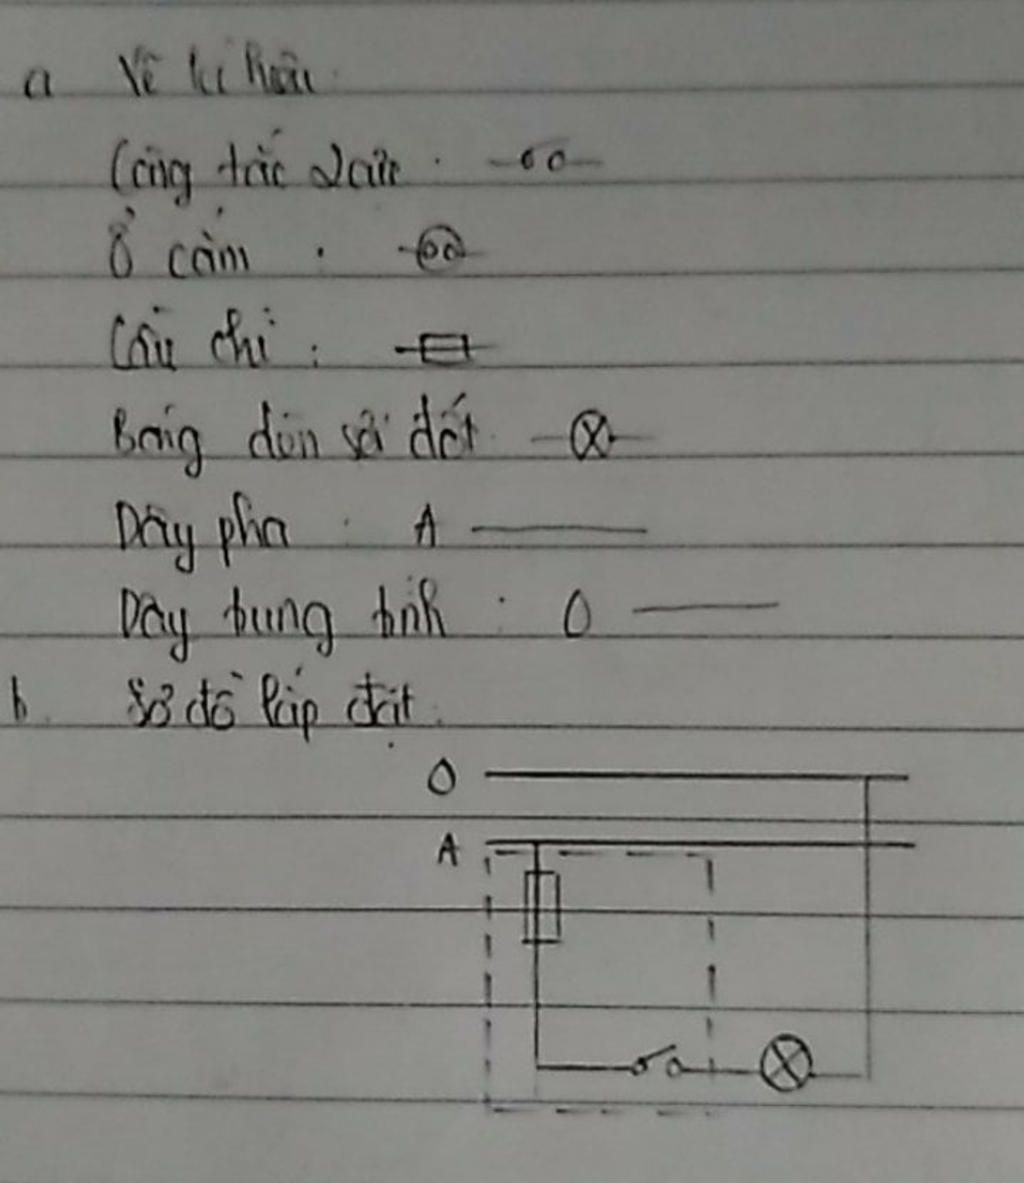 a Vẽ kí hiệu
Công tắc 2 cực :
Ổ cắm :
Cầu chì :
Bóng đèn sợi đốt
Dây pha : A
Dây trung tính : O
b. Sơ đồ lắp đặt
O
A